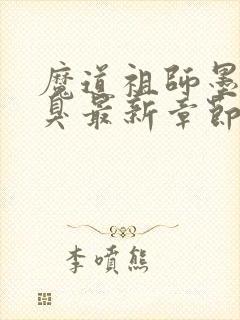 魔道祖師墨
臭最新章節
李噴熊